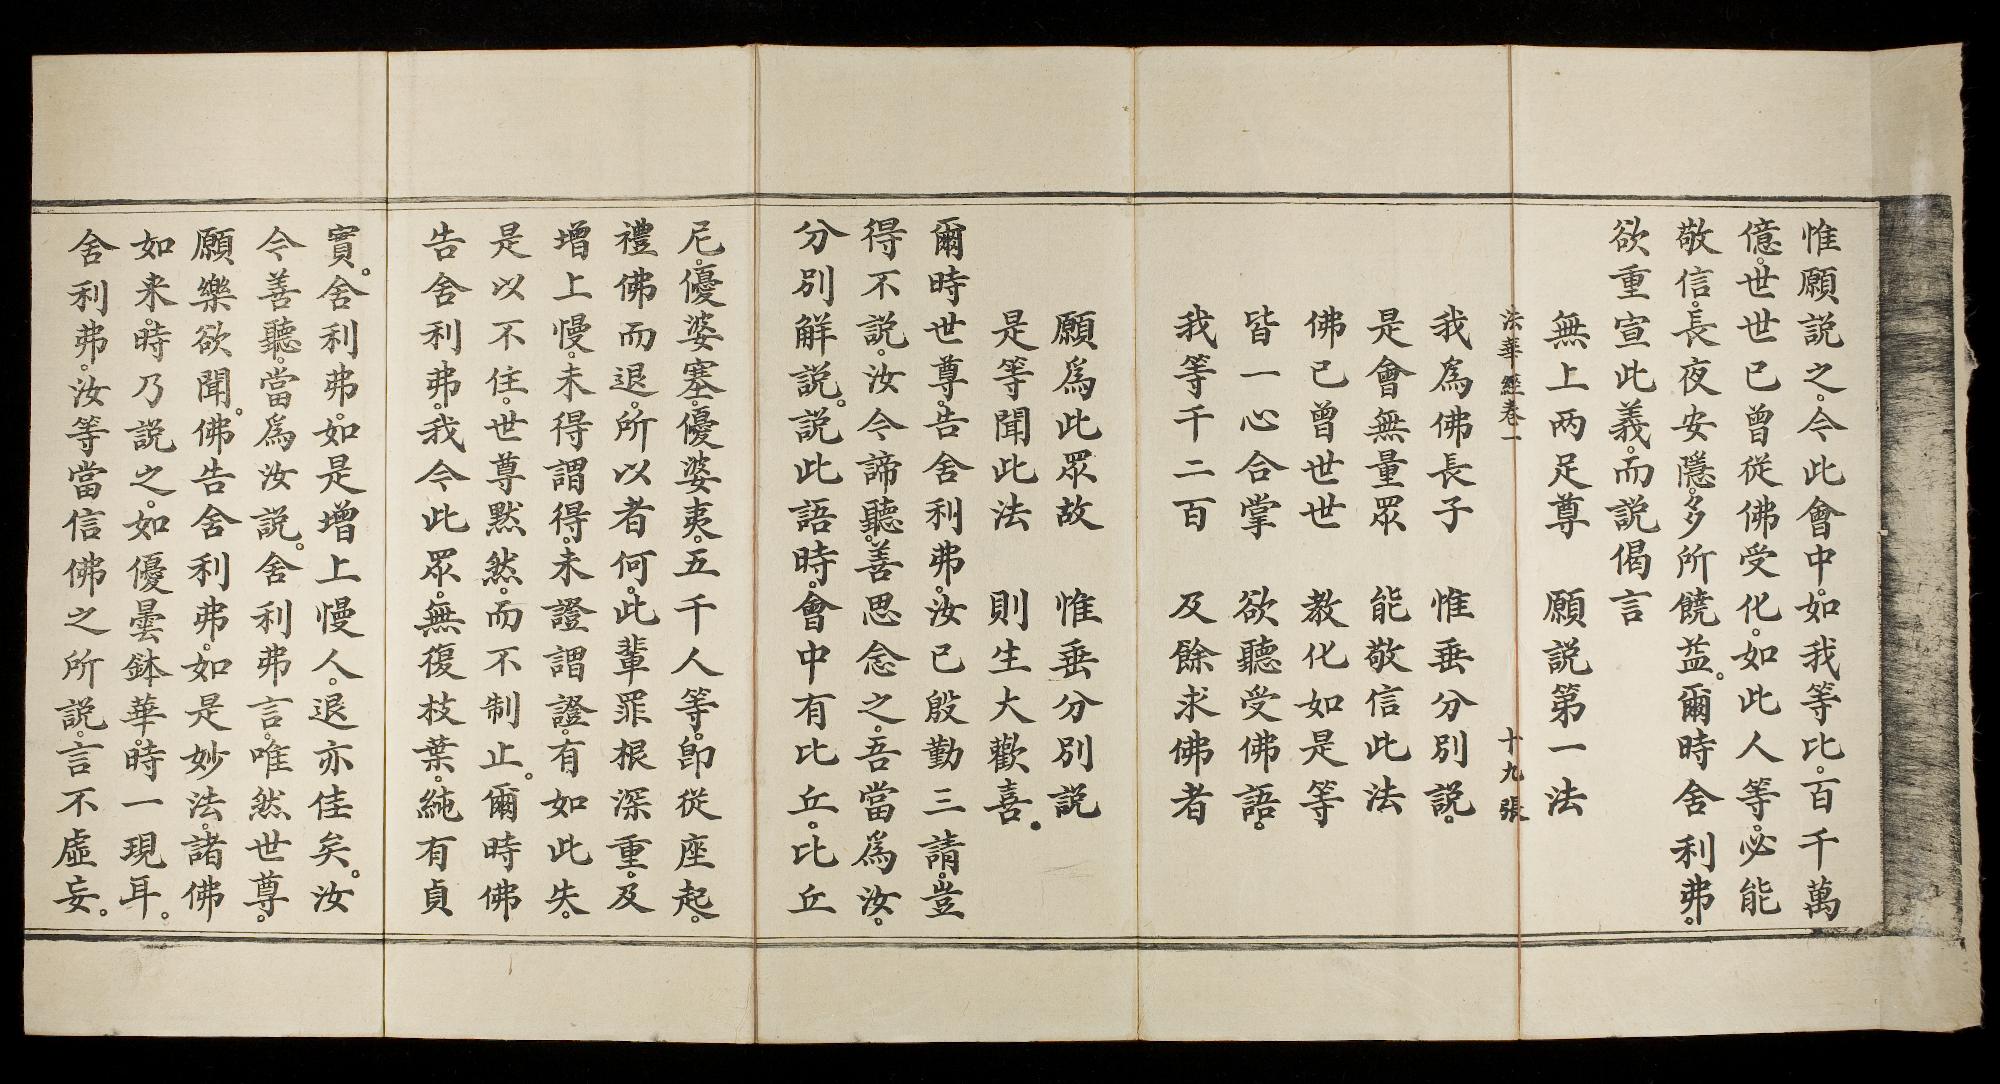 惟願説之。今此會中。如我等比。百千萬
億。世世已曾從佛受化。如此人等。必能
敬信。長夜安隱。多所饒益。爾時舍利弗。
欲重宣此義。而説偈言
無上两足尊　願説第一法
法華經卷一　十九張
我爲佛長子　惟垂分別説。
是會無量眾　能敬信此法
佛已曾世世　教化如是等
皆一心合掌　欲聽受佛語。
我等千二百　及餘求佛者
願爲此眾故　惟垂分別説
是等聞此法　則生大歡喜。
爾時世尊。告舍利弗。汝已殷勤三請。豈
得不説。汝今諦聽。善思念之。吾當爲汝。
分別解説。説此語時。會中有比丘。比丘
尼。優婆塞。優婆夷。五千人等。卽從座起。
禮佛而退。所以者何。此輩罪根深重。及
增上慢。未得謂得。未證謂證。有如此失。
是以不住。世尊默然。而不制止。爾時佛
告舍利弗。我今此眾。無復枝葉。純有貞
實。舍利弗。如是增上慢人。退亦佳矣。汝
今善聽。當爲汝説。舍利弗言。唯然世尊。
願樂欲聞。佛告舍利弗。如是妙法。諸佛
如来。時乃説之。如優曇鉢華。時一現耳。
舍利弗。汝等當信佛之所説。言不虛妄。